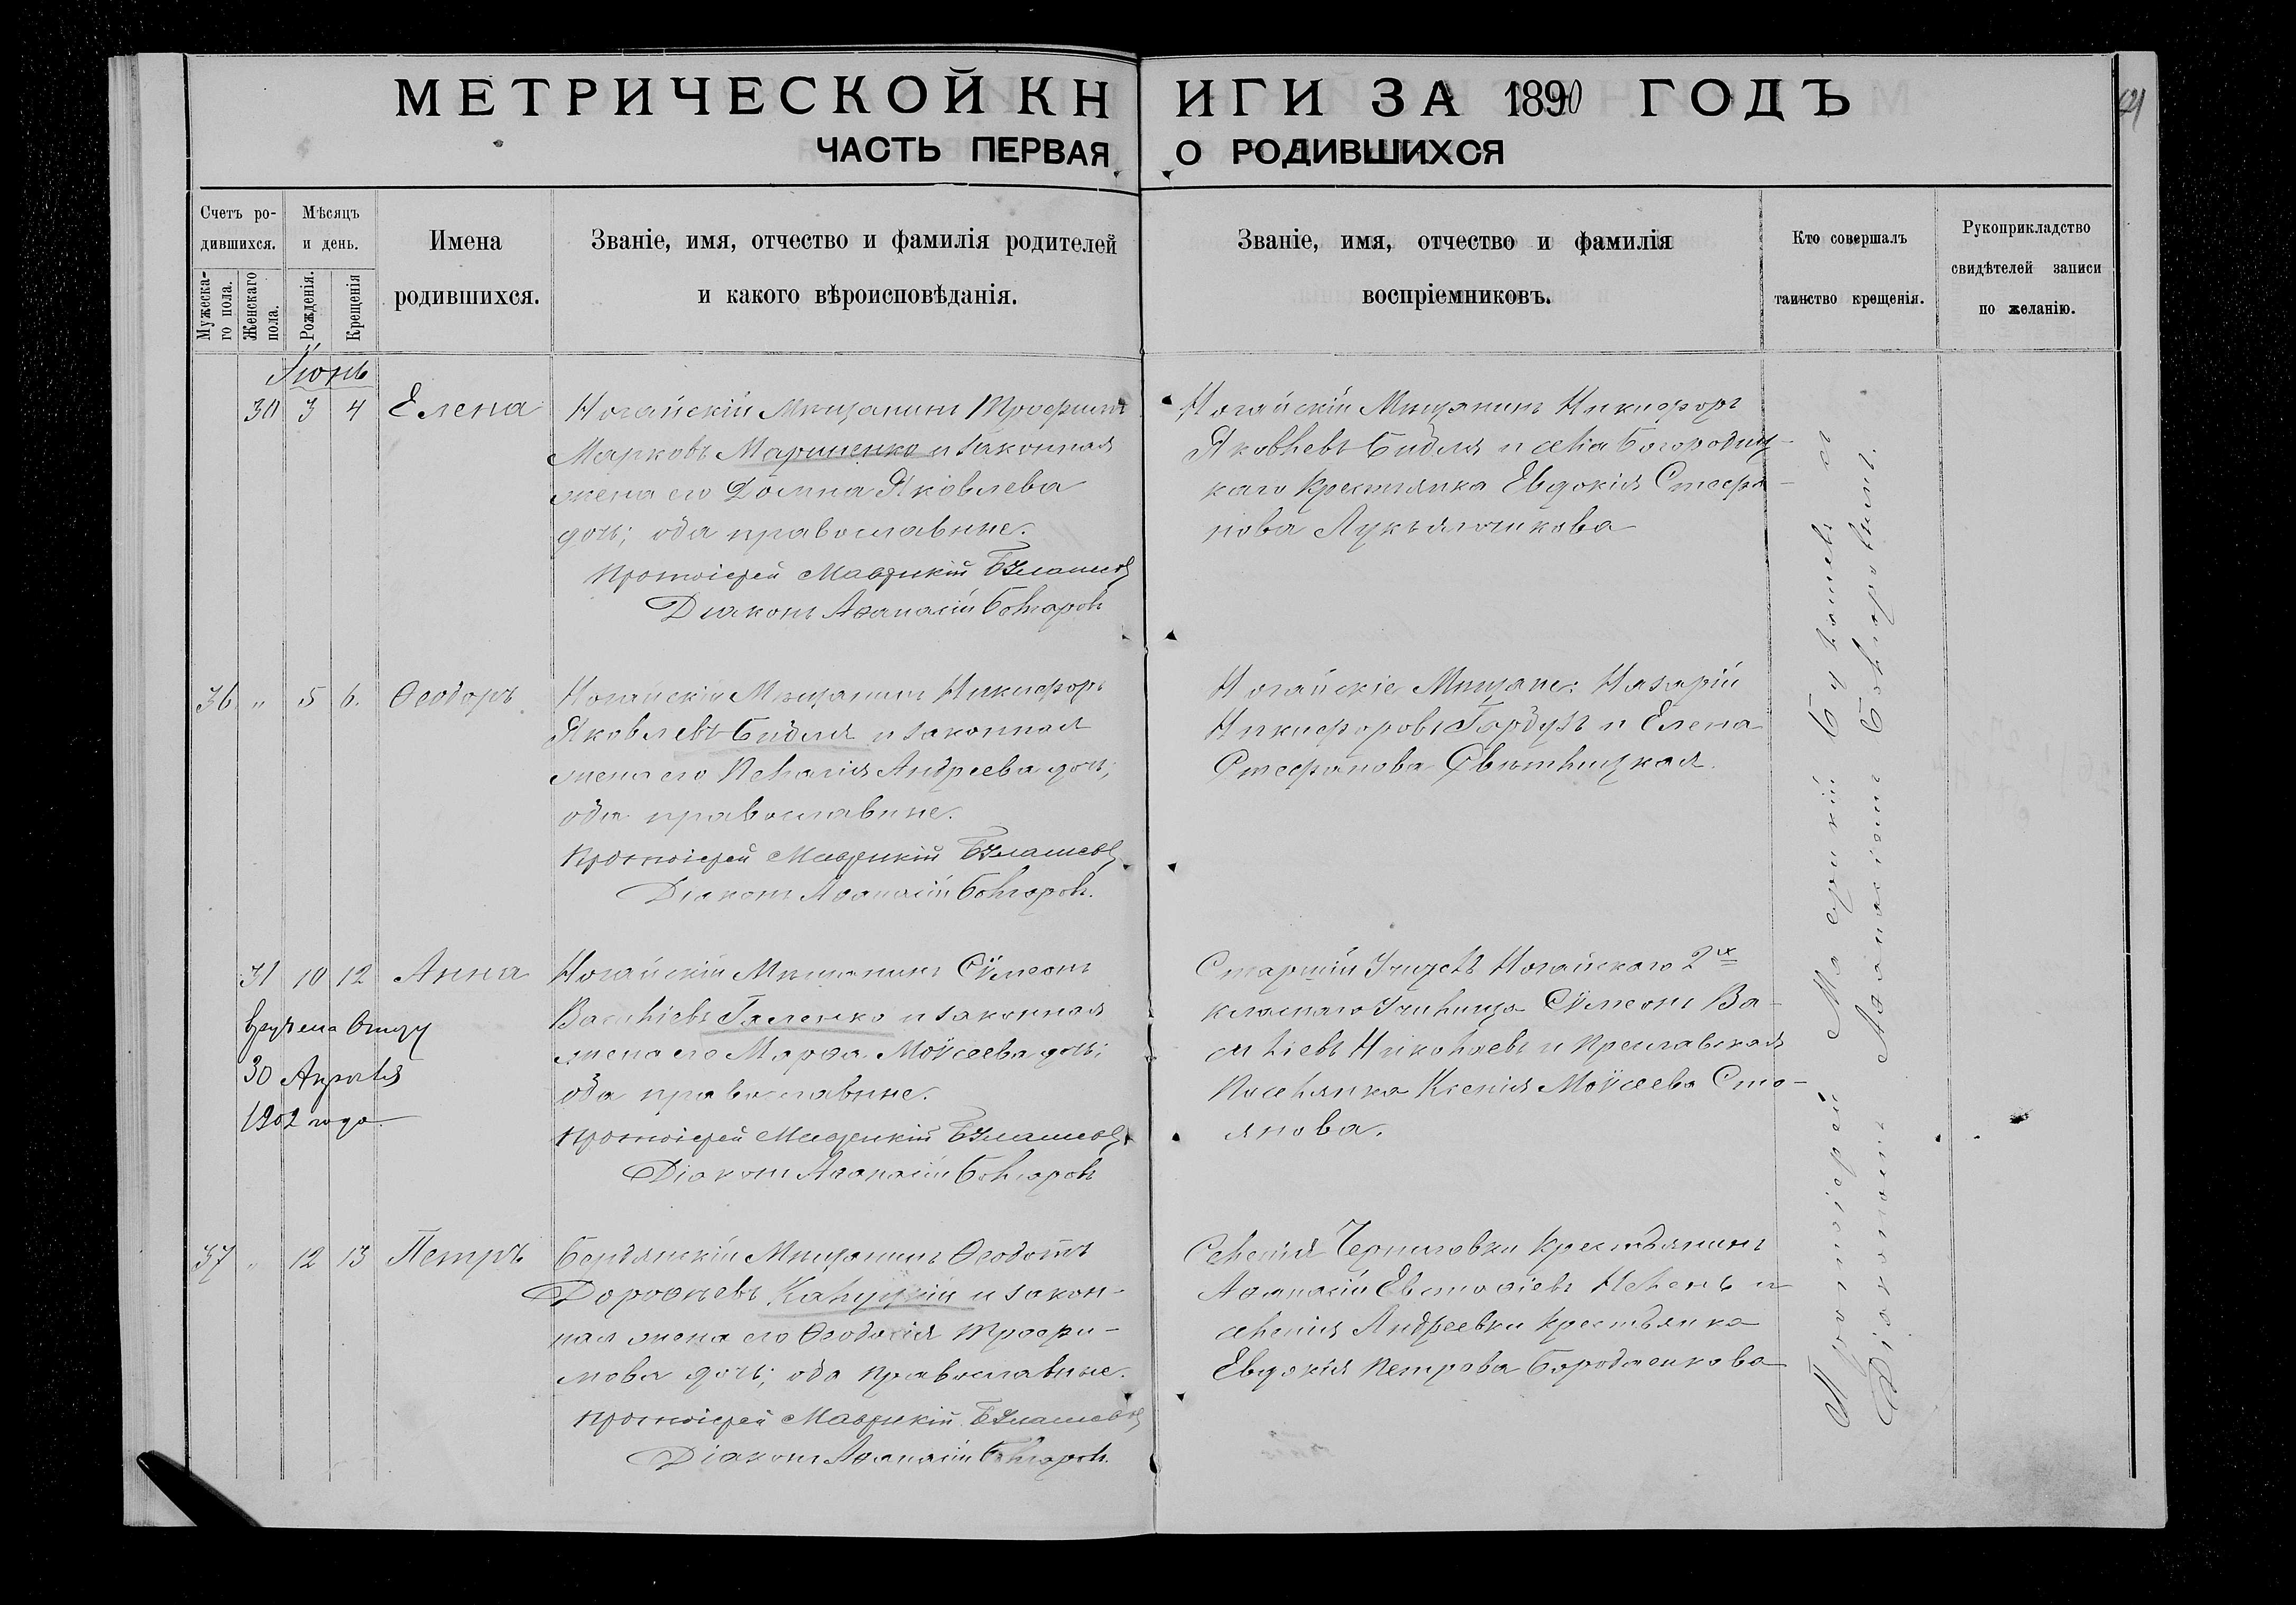 МЕТРИЧЕСКОЙ КНИГИ ЗА 1890 ГОДЪ
ЧАСТЬ ПЕРВАЯ О РОДИВШИХСЯ
Счетъ ро-
дившихся.
Мужеска-
го пола.
Женскаго
пола.
Мѣсяцъ
и день.
Рожденія.
Крещенія
Имена
родившихся.
Званіе, имя, отчество и фамилія родителей
и какого вѣроисповѣданія.
Званіе, имя, отчество и фамилія
воспріемниковъ.
Кто совершалъ
таинство крещенія.
Рукоприкладство
свидѣтелей записи
по желанію.
Іюнь
30 3 4 Елена
Ногайскій Мѣщанинъ Трофимъ
Марковъ Мариненко и законная
жена его Домна Яковлева
дочь; оба православные.
Протоіерей Маврикій
Діаконъ Аѳанасій Болгаровъ
Ногайскій Мѣщанинъ Никифоръ
Яковлевъ Бидля и села Богородиц-
каго крестьянка Евдокія Стефа-
нова Лукьянчикова
36 " 5 6. Ѳеодоръ
Ногайскій Мѣщанинъ Никифоръ
Яковлевъ Бидля и законная
жена его Пелагія Андреева дочь;
оба православные.
Протоіерей Маврикій
Діаконъ Аѳанасій Болгаровъ.
Ногайскіе Мѣщане: Назарій
Никифоровъ Гордузъ и Елена
Стефанова Свѣтлицкая.
31 10 12 Анна
вручена Отцу
30 Апрѣля
1902 года
Ногайскій Мѣщанинъ Сѵмеонъ
Васильевъ Галенко и законная
жена его Марѳа Моѵсеева дочь;
оба православные.
Протоіерей Маврикій
Діаконъ Аѳанасій Болгаровъ
Старшій Учитель Ногайскаго 2х
класнаго Училища Сѵмеонъ Ва-
сильевъ Николаевъ и Преславская
Поселянка Ксенія Моѵсеева Сто-
янова.
37 " 12 13 Петръ
Бердянскій Мѣщанинъ Ѳеодотъ
Дороѳеевъ Калуцкій и закон-
ная жена его Ѳеодосія Трофи-
мова дочь; оба православные.
Протоіерей Маврикій
Діаконъ Аѳанасій Болгаровъ.
Селенія Черниговки крестьянинъ
Аѳанасій Евстаѳіевъ и
селенія Андреевки крестьянка
Евдокія Петрова Бородаенкова
Протоіерей Маврикій съ
Діакономъ Аѳанасіемъ Болгаровымъ.